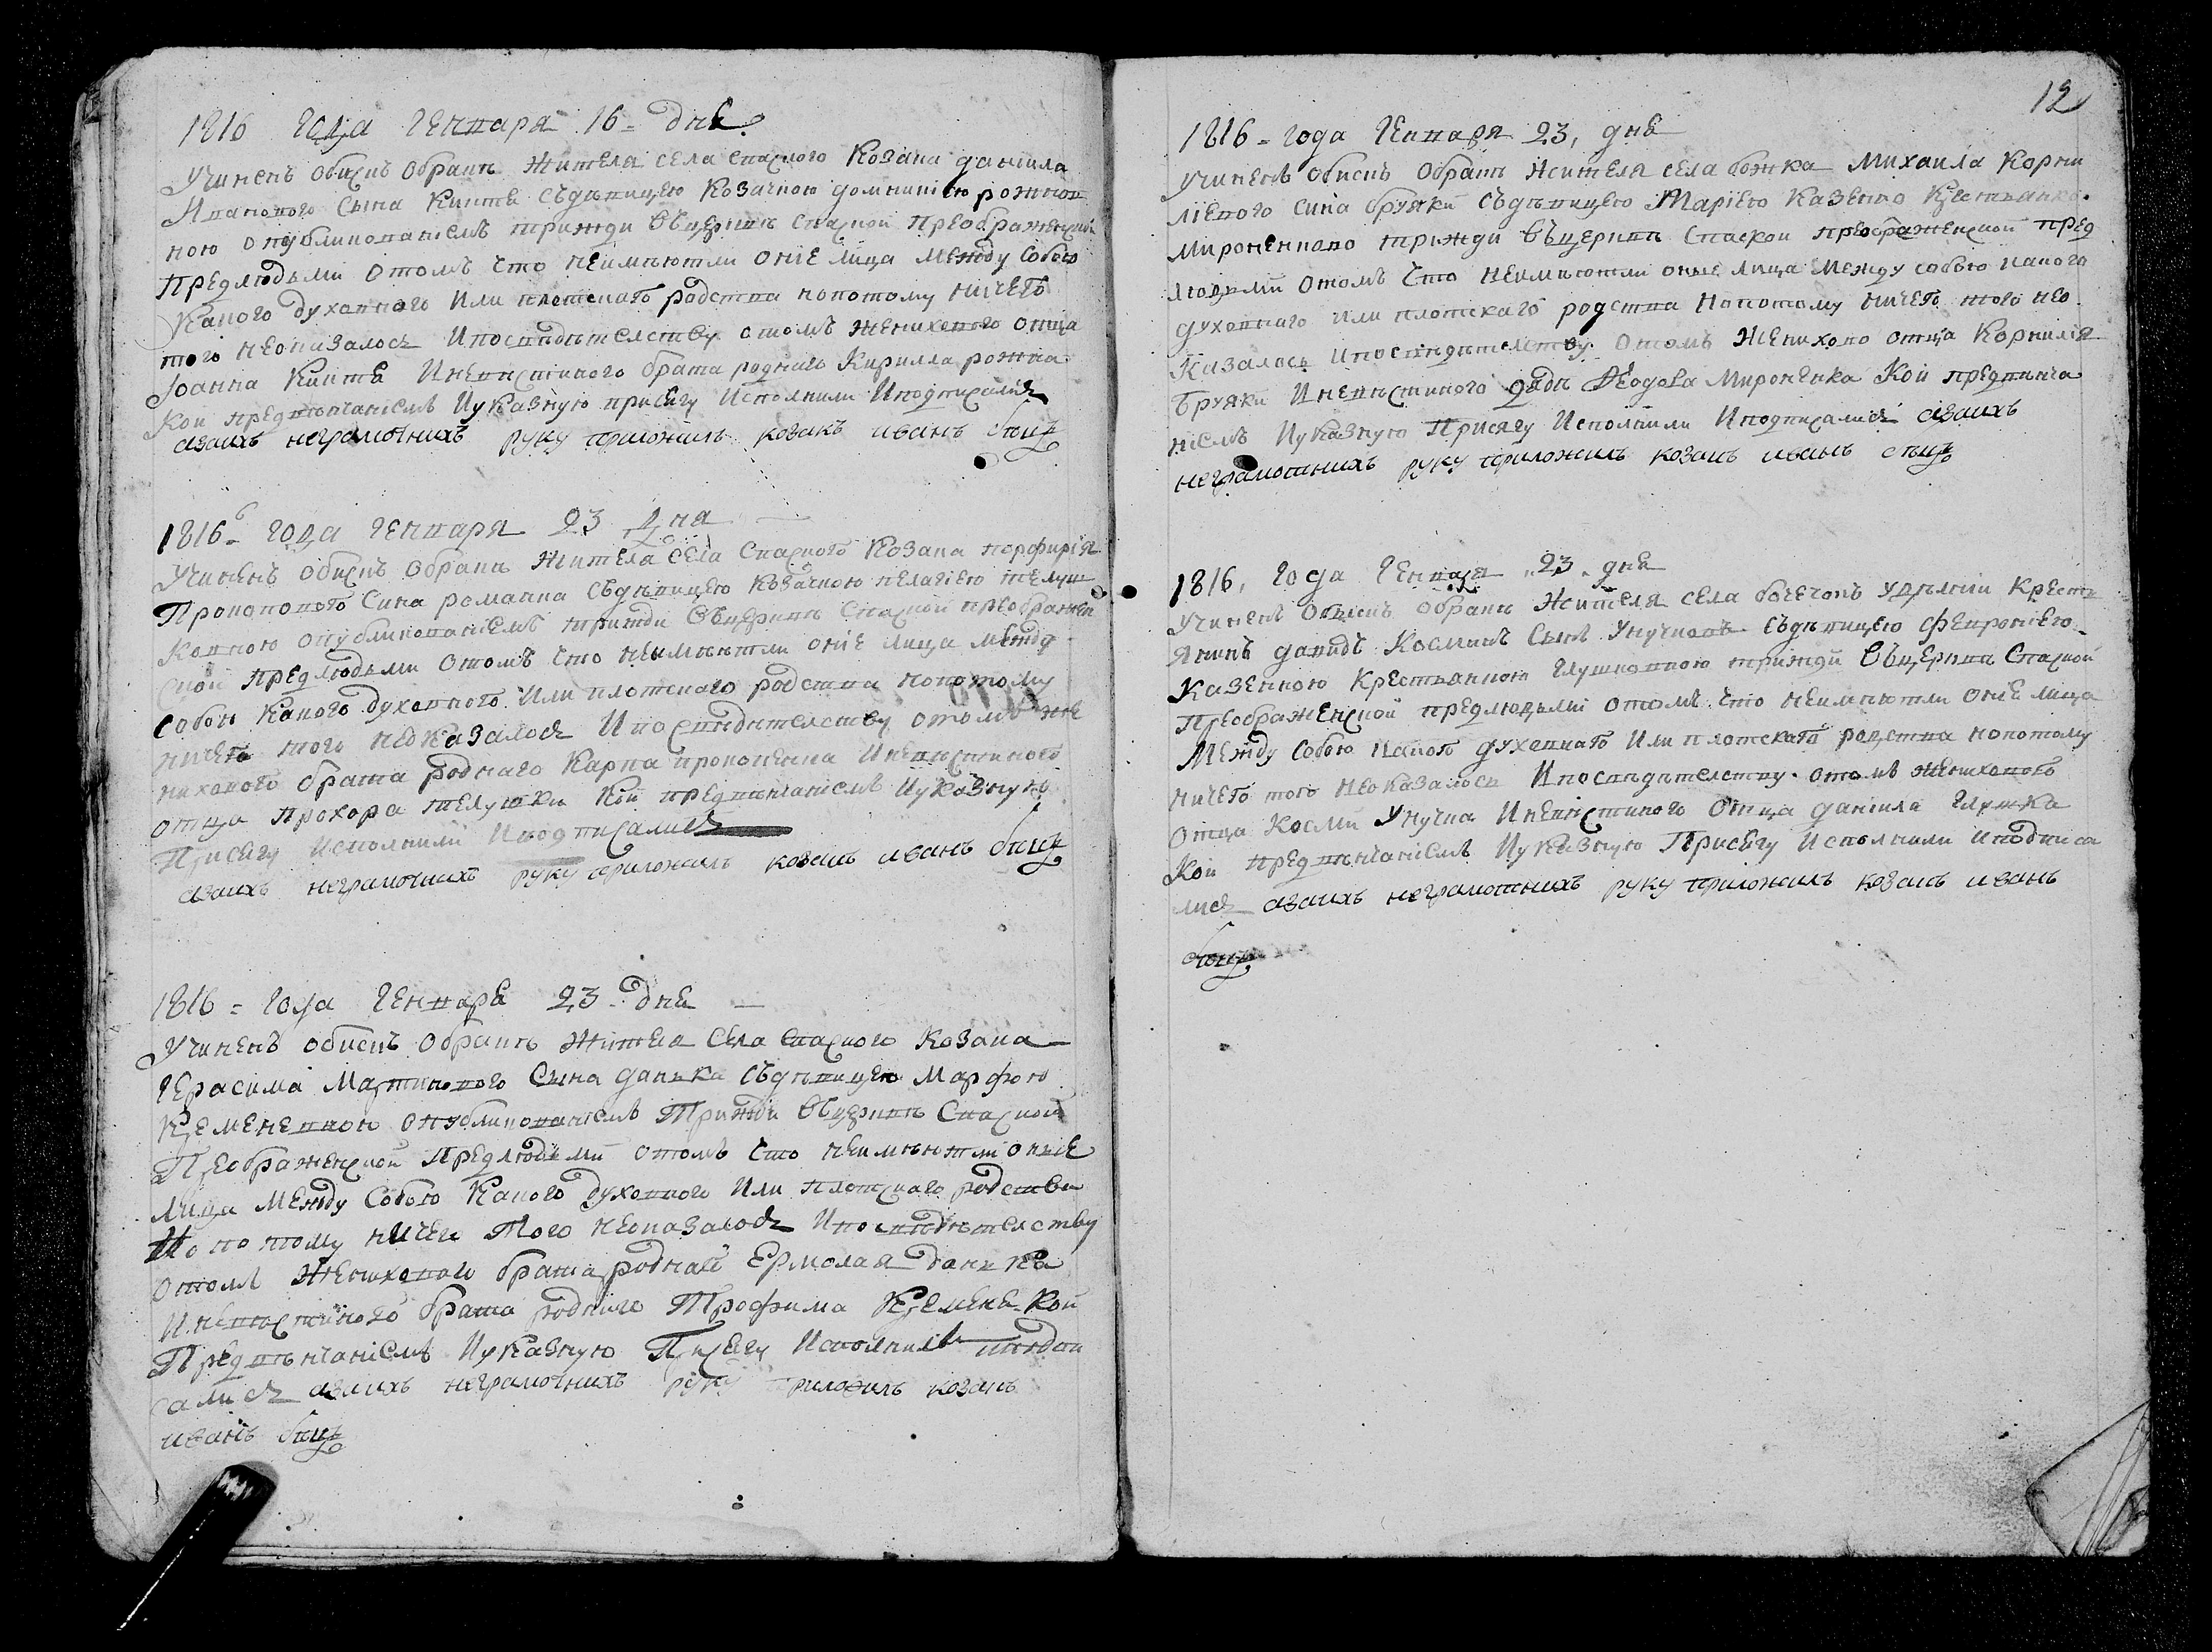 1816 года генваря 16 дне
Учиненъ обискъ обракѣ жителя села Спаского Козака данiила
Иванового сына Кинте съдѣвицею козачкою домникiею рожков
ною опубликованiемъ трижди вцеркви Спаской Преображенской
предлюдьми отомъ что неимѣютли онiе лица между собою
какого духовного или плотского родства попотому ничего
того неоказалось Ипосвидѣтелству отомъ женихового отца
Iоанна Кинте Иневѣстиного брата роднаго Кирилла рожка
кои предвѣнчанiемъ Иуказную присягу Исполнили Иподписалися
аваихъ неграмотнихъ руку приложилъ козакъ иванъ
1816 года генваря 23 дня
Учиненъ обискъ обракѣ жителя села Спаского Козака порфирiя
Прокопового сина романа съдѣвицею козачкою пелагiею телуш
ковною опубликованiемъ трижди вцеркви Спаской преображен
ской предлюдьми отомъ что неимѣютли онiе лица между
собою какого духовного или плотскаго родства попотому
ничего того неоказалося Ипосвидѣтелству отомъ же
нихового брата роднаго Карпа Иневѣстиного
отца Прохора телушки кои предвѣнчанiемъ Иуказную
Присягу исполнили Иподписалися
аваихъ неграмотнихъ руку приложилъ козакъ иванъ
1816 = года генваря 23 дне
Учиненъ обискъ обракѣ жителя села Спаского Козака
Герасима Мартинового сына данька съдѣвицею Марфою
Кременевною опубликованiемъ Трижди вцеркви Спаской
Преображенской предлюдьми отомъ что неимѣютли оние
лица между собою какого духовного или плотскаго родства
попотому ничего того неоказалося Ипосвидѣтелству
отомъ женихового брата роднаго Ермолая данька
Иневѣстиного брата родного Трофима Кременя кои
Предвѣнчанiемъ Иуказную Присягу Исполнили иподпи
салися аваихъ неграмотнихъ руку приложилъ козакъ
иванъ
12
1816 = года генваря 23, дне
учиненъ обискъ обракѣ жителя села божка Михаила Корни
лiевого сина бруяки съдѣвицею Марiею казенно крестьянко
мироненково трижди вѣцеркви Спаской преображенской пред
людьми отомъ что неимѣютли оние лица между собою какого
духовнаго или плотскаго родства попотому ничего того нео
казалось Ипосвидѣтелству отомъ женихово отца Корнилiя
Бруяки Иневѣстиного дяди Мироненка кои предвѣнча
нiемъ Иуказную Присягу Исполнили Иподписалися аваихъ
неграмотнихъ руку приложилъ козакъ иванъ
1816, года генваря 23 дне
учиненъ обискъ обракѣ жителя села бочечокъ удѣлнiй Крестъ
янинъ давидъ Косминъ Сынъ Унучкъ съдѣвицею Февронiею
казенною крестьянкою глушковною трижди вѣцеркви Спаской
Преображенской предлюдьми отомъ что неимѣютли онiе лица
между собою какого духовнаго или плотскаго родства попотому
ничего того неоказалось Ипосвидѣтелству отомъ женихового
отца Косми Унучка Иневѣстиного отца данiила глушка
кои предвѣнчанiемъ Иуказную Присягу Исполнили иподписа
лися аваихъ неграмотнихъ руку приложилъ козакъ иванъ